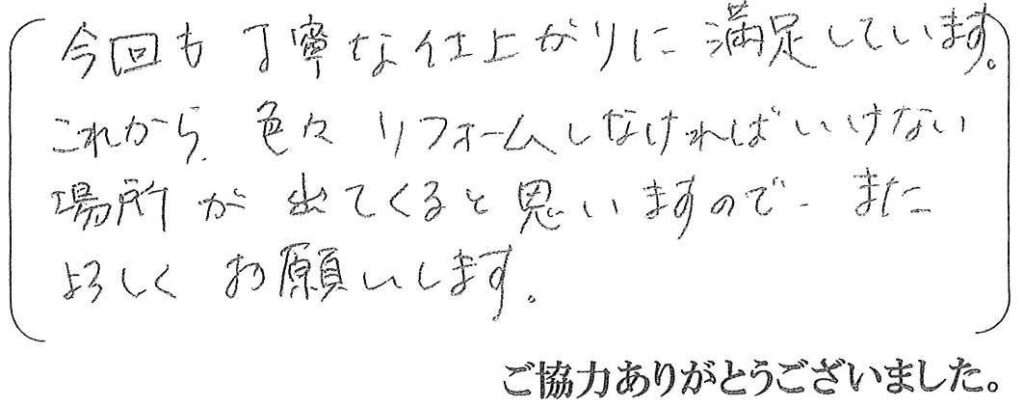 今回も丁寧な仕上がりに満足しています。
これから、色々リフォームしなければいけない
場所が出てくると思いますので、また
よろしくお願いします。
ご協力ありがとうございました。